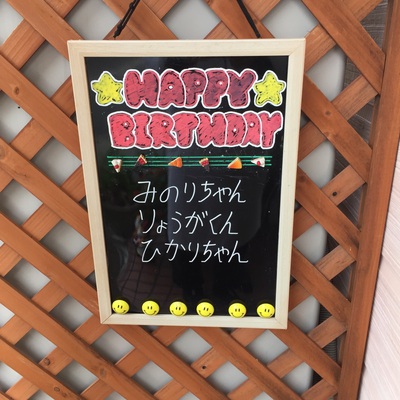 HAPPY
BIRTHDAY
みのりちゃん
りょうがくん
ひかりちゃん